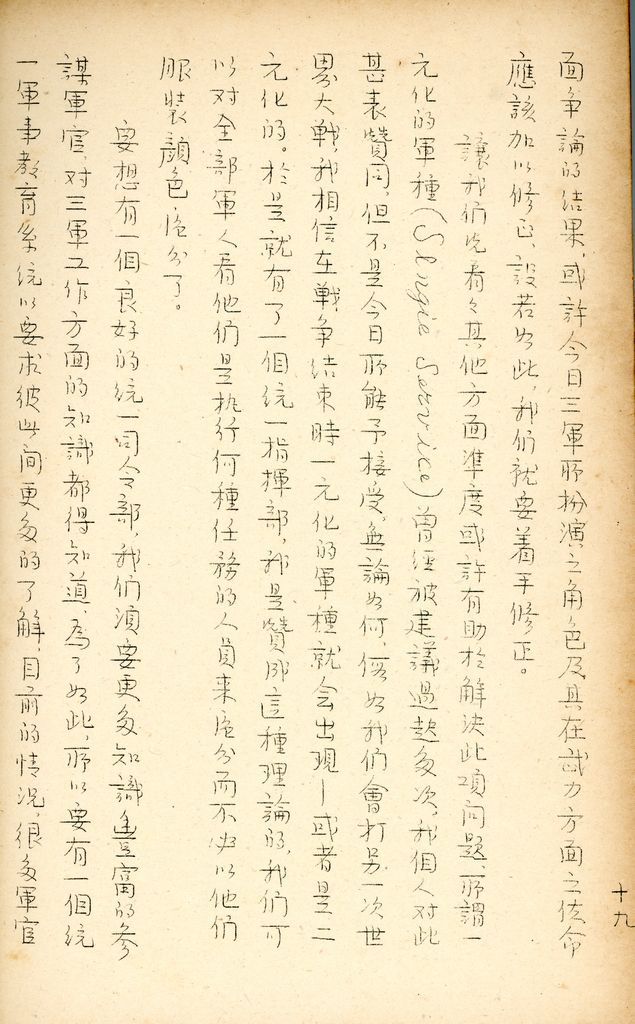 十九
面爭論的结果，或許今日三軍所扮演之角色及其在武力方面之使命
應該加以修正，設若如此，我们就要着手修正。
讓我们先看々其他方面準度或許有助於解決此項问题，所謂一
元化的軍種（Sengie Service）曾经被建議過起多次，我個人对此
甚表贊同，但不是今日所能予接受，無論如何，倘如我们會打另一次世
界大戰，我相信在戰争结束時一元化的軍種就会出現—或者是二
元化的。於是就有了一個统一指揮部，我是贊成這種理論的，我们可
以对全部軍人看他们是执行何種任務的人員来區分而不必以他们
服裝顏色區分了。
要想有一個良好的统一司令部，我们須要更多知識豊富的参
謀軍官，对三軍工作方面的知識都得知道，為了如此，所以要有一個统
一軍事教育系统以要求彼此间更多的了解，目前的情况，很多軍官